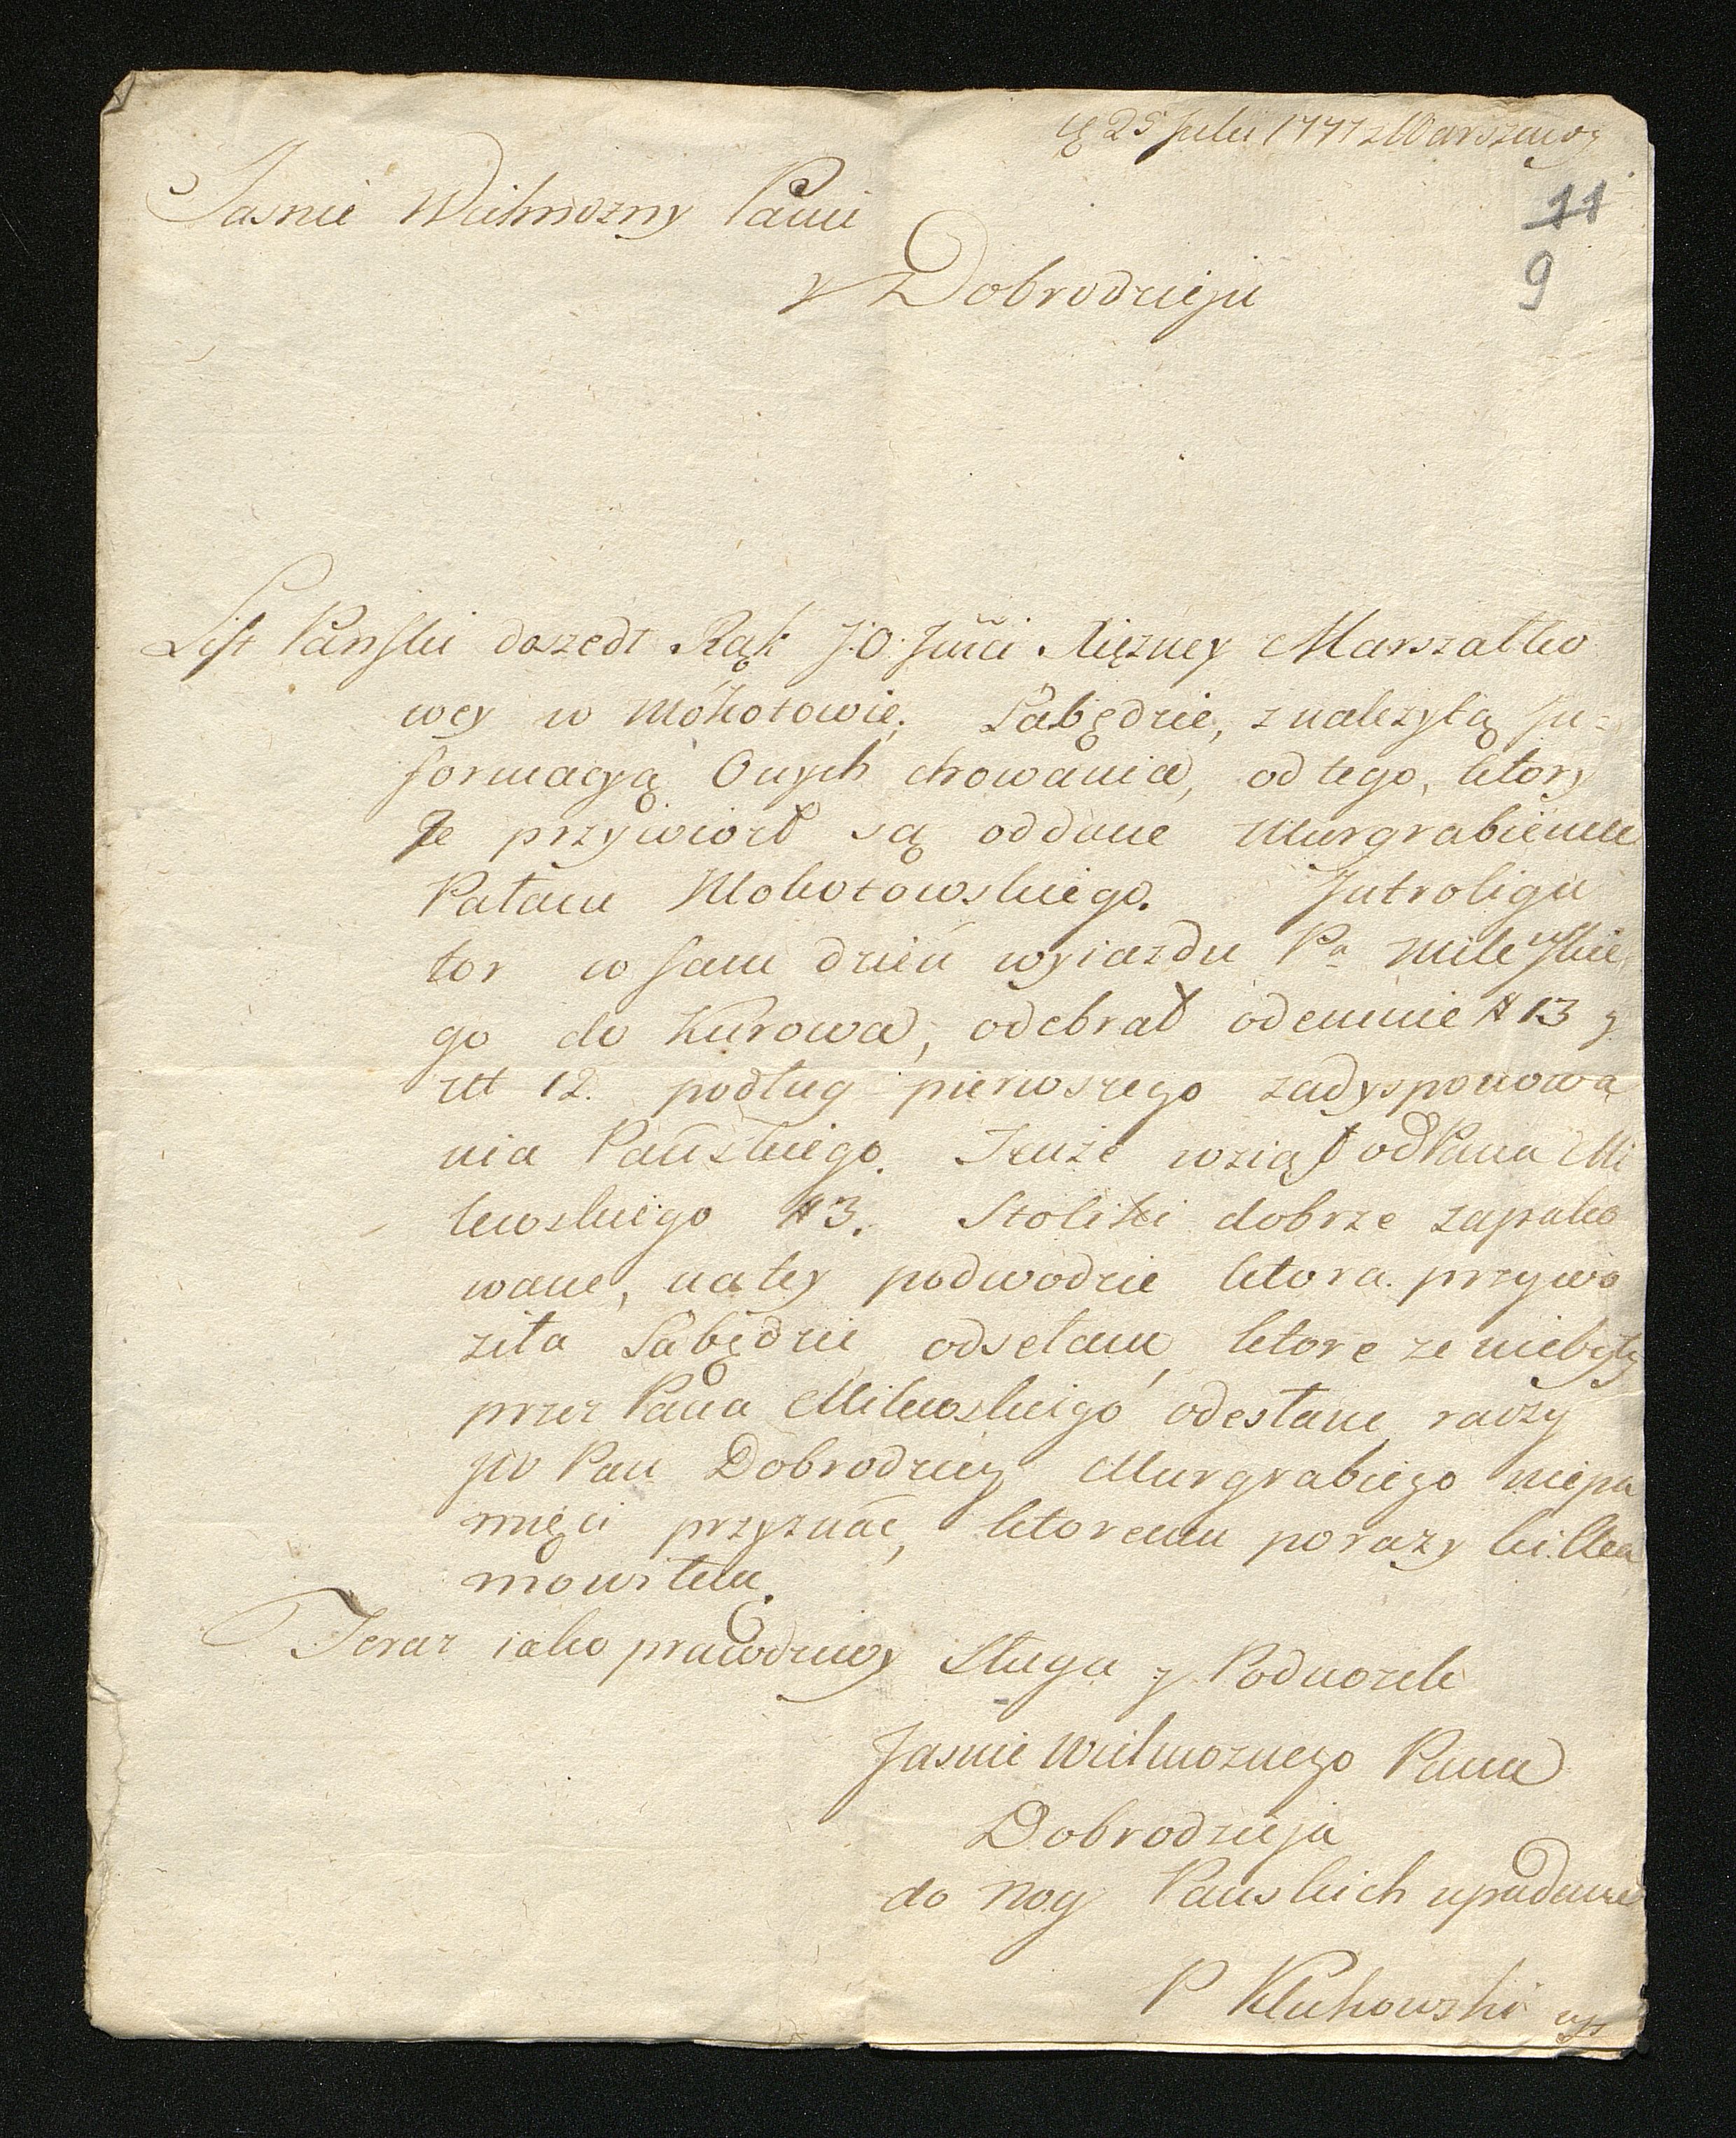 25 Julii 1777 z Warszawy
11
9
Jasnie Wielmozny Panie
y Dobrodzieju
List Panski doszedł Rąk J.O. Jmci Xięzney Marszałko
wey w Mokotowie. Łabędzie, z nalezytą In=
formacyą Onych chowania, od tego, ktory
Je przywiozł są oddane Murgrabiemu
Pałacu Mokotowskiego. Jntroliga
tor w sam dzień wyiazdu Pa Milewskie
go do Kurowa, odebrał odemnie # 13 y
złł 12. podług pierwszego zadysponowa
nia Pańskiego. Tenże wziął od Pana Mi
lewskiego # 3. Stoliki dobrze zapako
wane, na tey podwodzie ktora przywo
ziła Łabędzie odsełam, ktore ze niebyły
przez Pana Milewskiego odesłane, raczy
JW Pan Dobrodziey Murgrabiego niepa
mięci przyznać, ktoremu po razy kilka
mowiłem.
Teraz iako prawdziwy Sługa y Podnozek
Jasnie Wielmoznego Pana
Dobrodzieja
do Nog Panskich upadam
P Klukowski